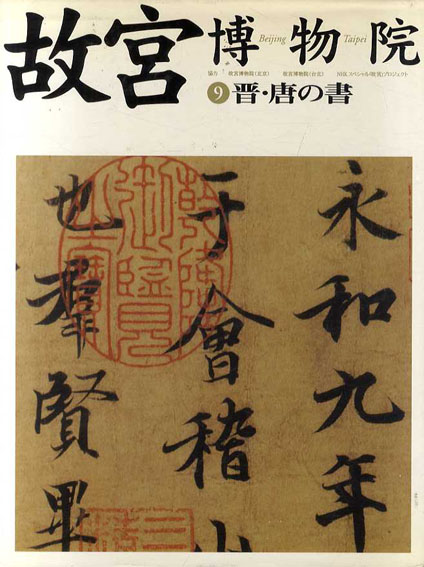 故宮博物院
Beijing Taipei
協力 故宮博物院(北京) 故宮博物院(台北) NHKスペシャル「故宮」プロジェクト
9 晋・唐の書
永和九年
于會稽山
也羣賢畢
乾隆御覽之寶
三希